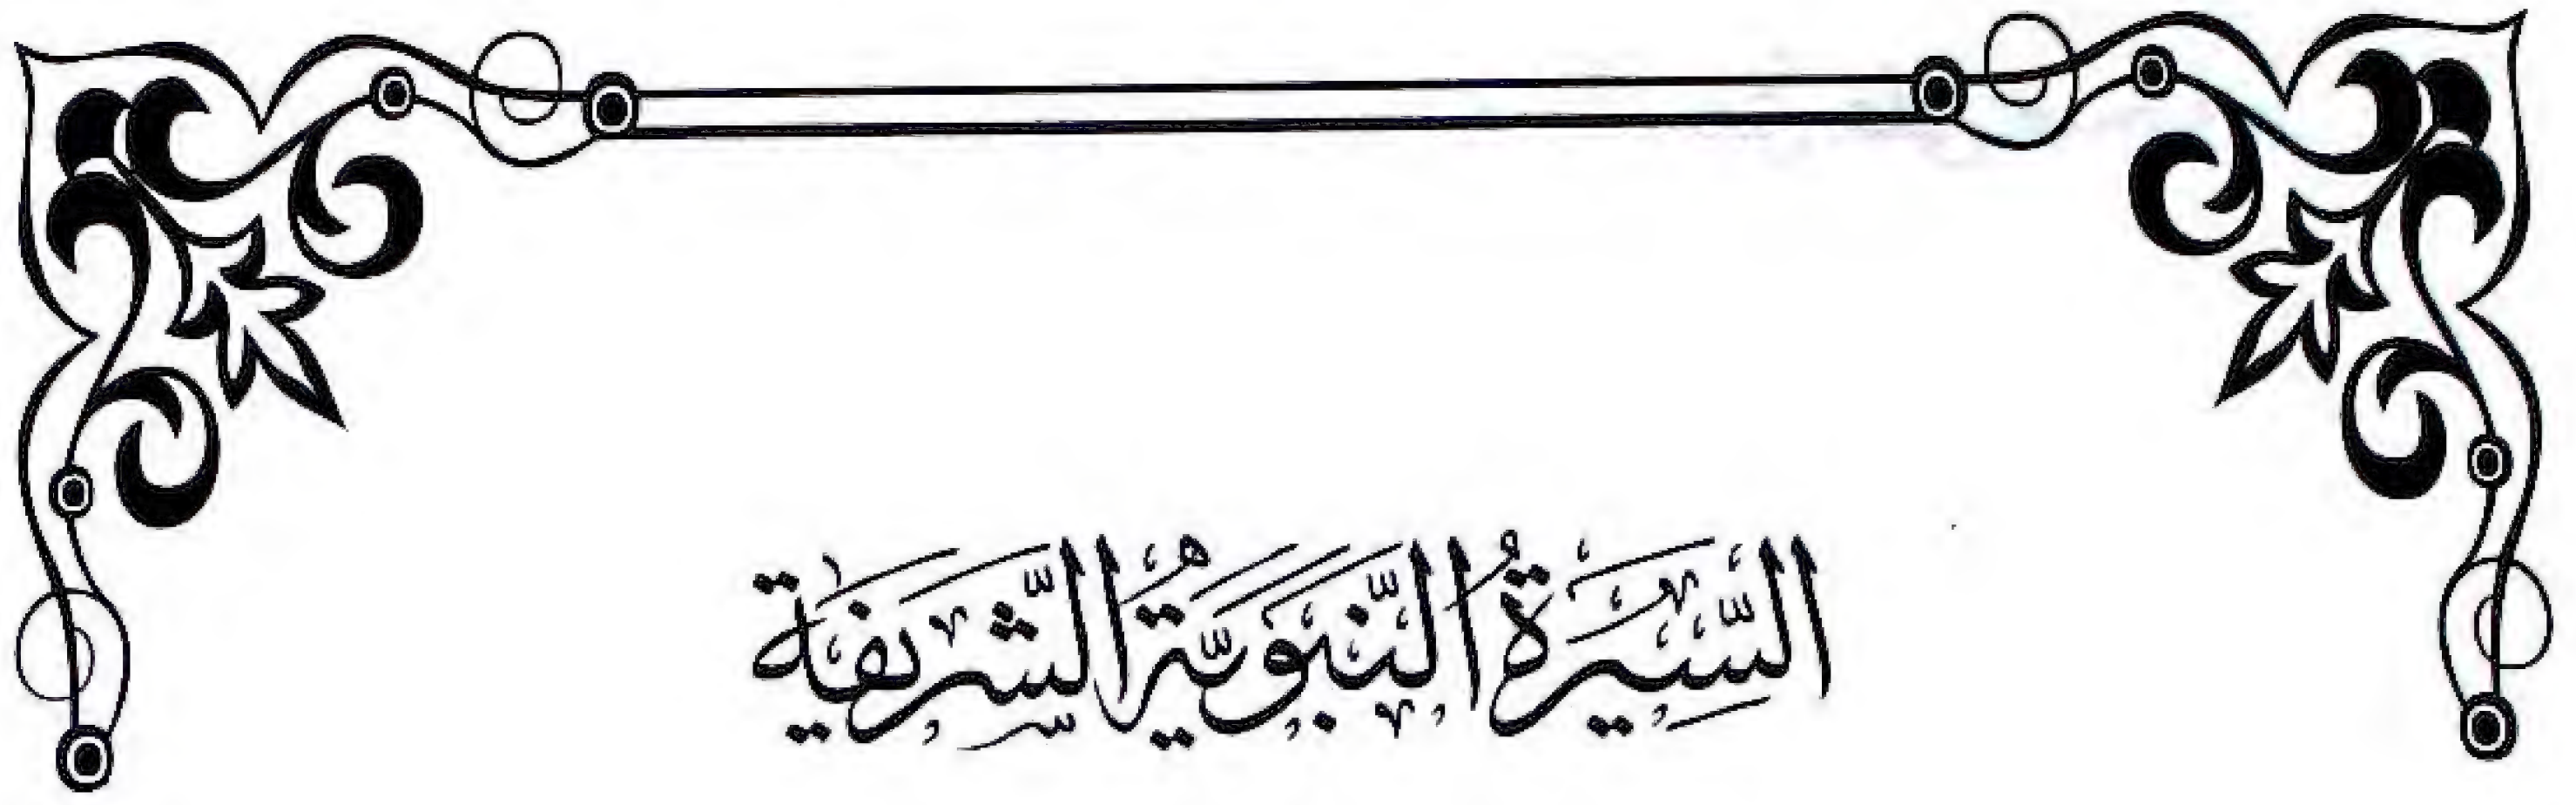 السِّيرَةُ النَّبَوِيَّةُ الشَّرِيفَة